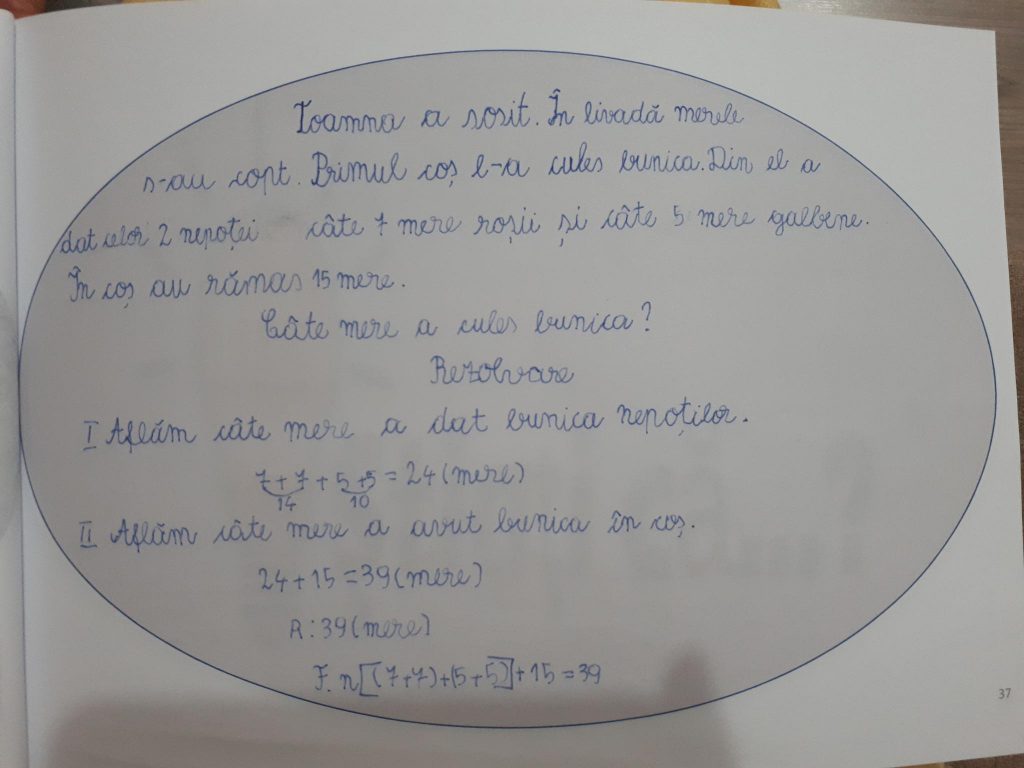 Toamna a sosit. În livadă merele
s-au copt. Primul coș l-a cules bunica. Din el a
dat celor 2 nepoței câte 7 mere roșii și câte 5 mere galbene.
În coș au rămas 15 mere.
Câte mere a cules bunica?
Rezolvare
I Aflăm câte mere a dat bunica nepoților.
7 + 7 + 5 + 5 = 24 (mere)
14 10
II Aflăm câte mere a avut bunica în coș.
24 + 15 = 39 (mere)
R: 39 (mere)
F. n [(7+7)+(5+5)]+15=39
37